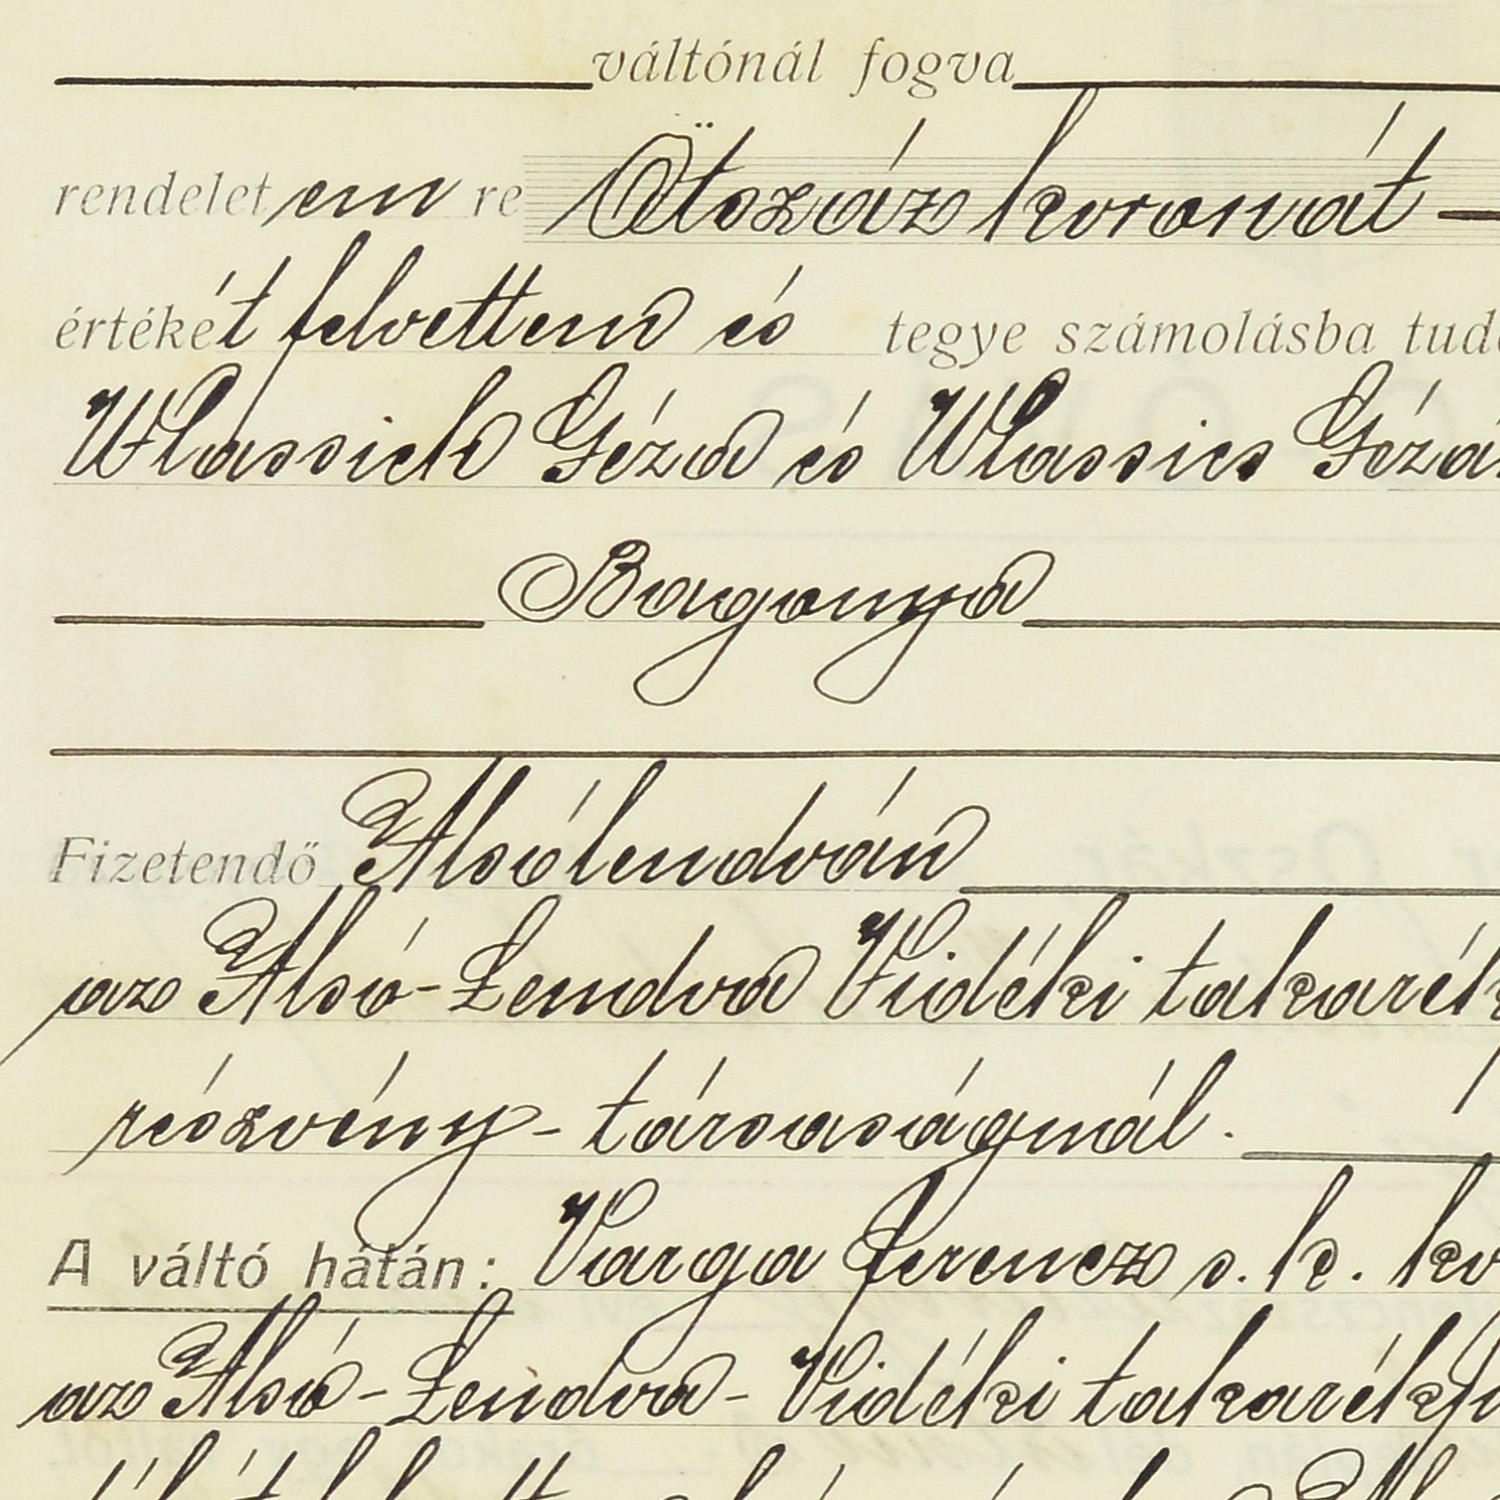 váltónál fogva
rendelet em re Ötszáz koronát —
értékét felvettem és tegye számolásba
Wlassich Géza és Wlassics
Bagonya
Fizetendő Alsólendván
az Alsó-Lendva Vidéki
részvény-társaságnál.
A váltó hátán: Varga Ferencz s. k.
az Alsó-Lendva-Vidéki